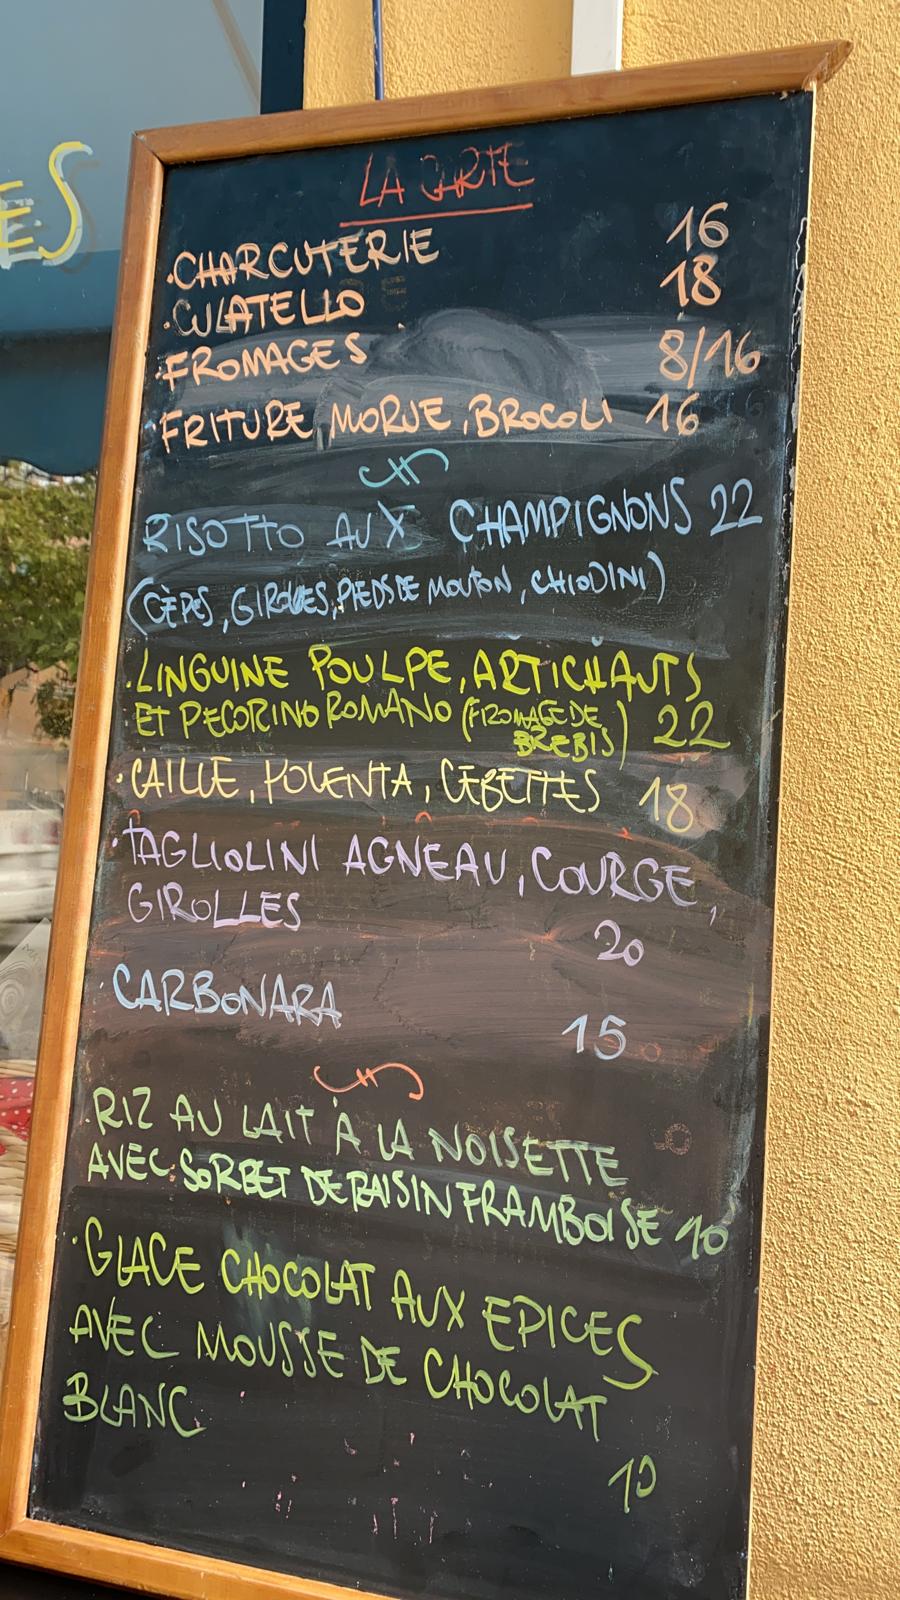 ES
LA CARTE
·CHARCUTERIE 16
·CULATELLO 18
·FROMAGES 8/16
·FRITURE MORUE, BROCOLI 16
RISOTTO AUX CHAMPIGNONS 22
(CÈPES, GIROLLES, PIEDS DE MOUTON, CHIODINI)
·LINGUINE POULPE, ARTICHAUTS
ET PECORINO ROMANO (FROMAGE DE
BREBIS) 22
·CAILLE, POLENTA, CÉBETTES 18
·TAGLIOLINI AGNEAU, COURGE,
GIROLLES
20
·CARBONARA
15
·RIZ AU LAIT À LA NOISETTE
AVEC SORBET DE RAISIN FRAMBOISE 10
·GLACE CHOCOLAT AUX EPICES
AVEC MOUSSE DE CHOCOLAT
BLANC
10